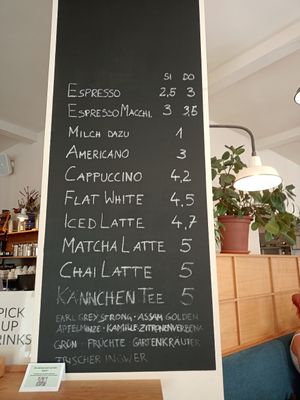 SI DO
ESPRESSO 2,5 3
ESPRESSO MACCHI. 3 3,5
MILCH DAZU 1
AMERICANO 3
CAPPUCCINO 4,2
FLAT WHITE 4,5
ICED LATTE 4,7
MATCHA LATTE 5
CHAI LATTE 5
KÄNNCHEN TEE 5
EARL GREY STRONG · ASSAM GOLDEN
APFELMINZE · KAMILLE · ZITRONENVERBENA
GRÜN · FRÜCHTE · GARTENKRÄUTER
FRISCHER INGWER
PICK
UP
DRINKS